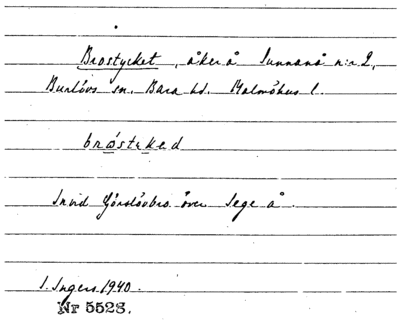 Brostycket, åker å Sunnanå n:r 2,
Burlövs sn. Bara hd. Malmöhus l.
brostyked
Invid Görslövbro över Sege å.
I. Ingers 1940.
Nr 5528.